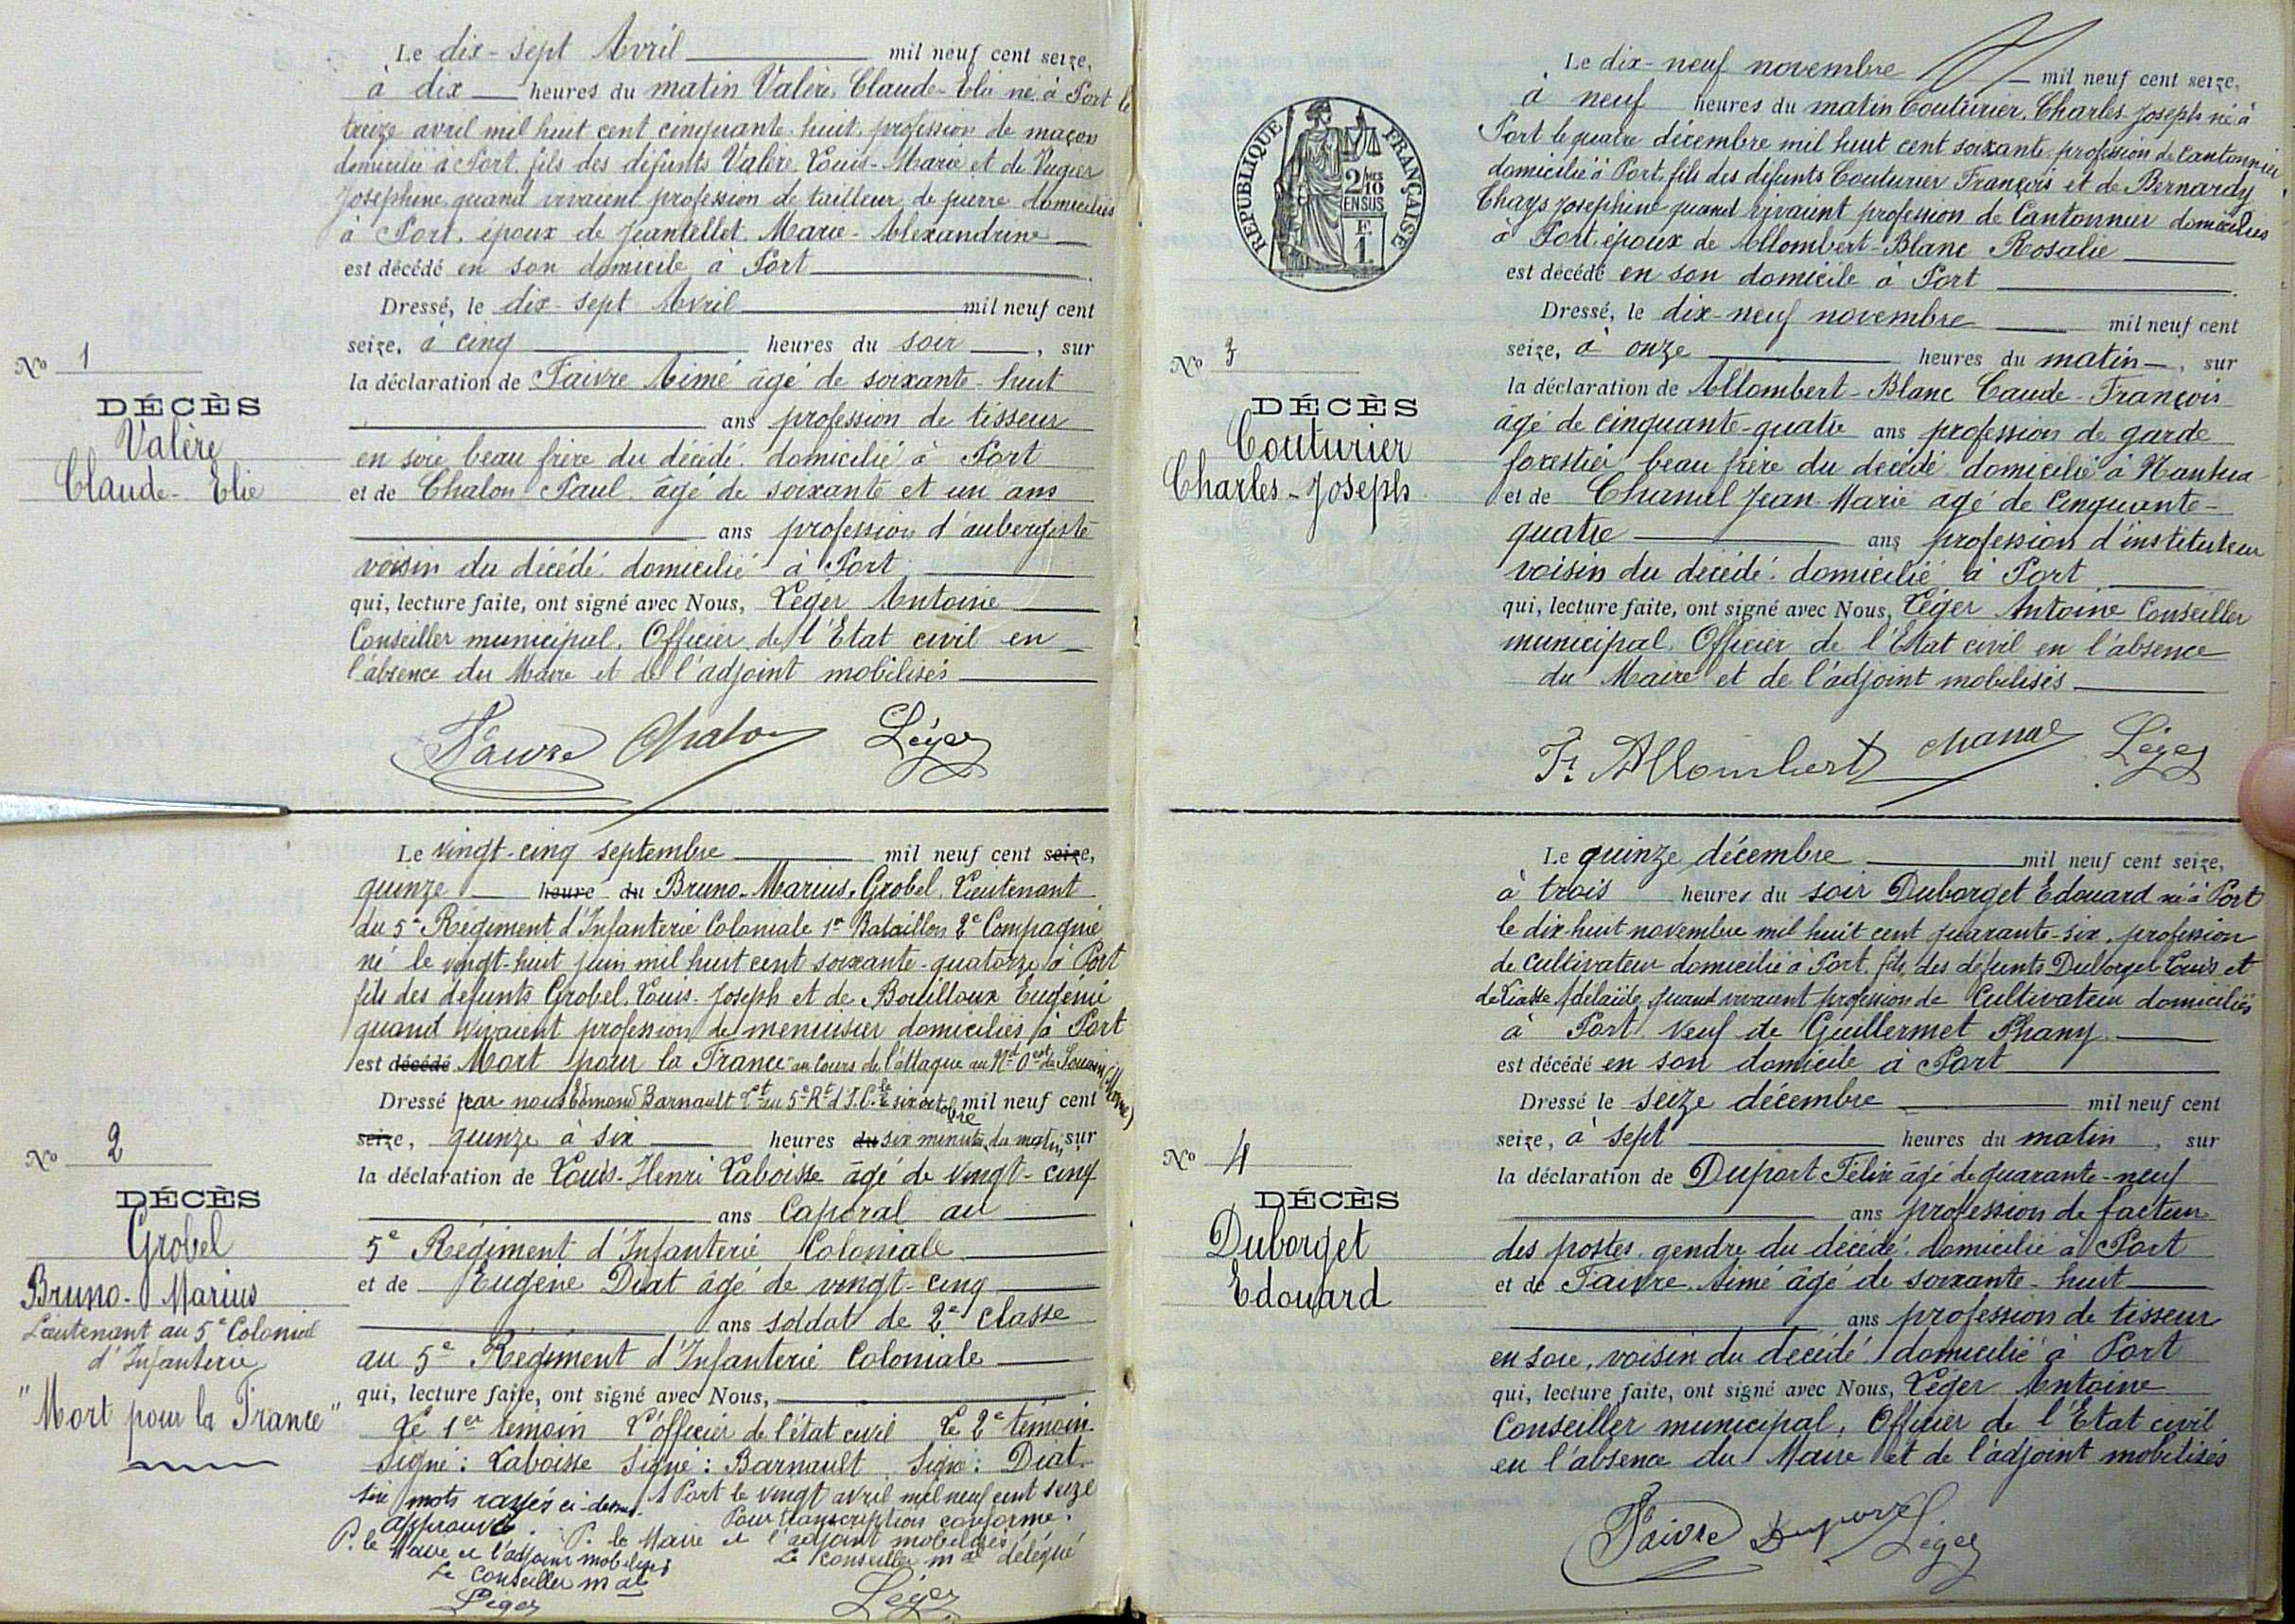 Le dix-sept Avril mil neuf cent seize,
à dix heures du matin Valère, Claude-Elie né à Port le
treize avril mil huit cent cinquante-huit, profession de maçon
domicilié à Port, fils des défunts Valère, Louis-Marie et de
Josephine quand vivaient profession de tailleur de pierre domiciliés
à Port, époux de Jeantellet, Marie-Alexandrine
est décédé en son domicile à Port
Dressé, le dix-sept Avril mil neuf cent
seize, à cinq heures du soir, sur
la déclaration de Faivre Aimé âgé de soixante-huit
ans profession de tisseur
en soie beau frère du décédé, domicilié à Port
et de Chalon Paul, âgé de soixante et un ans
ans profession d'aubergiste
voisin du décédé domicilié à Port
qui, lecture faite, ont signé avec Nous, Léger Antoine
Conseiller municipal, Officier de l'Etat civil en
l'absence du Maire et de l'adjoint mobilisés
Faivre Chalon Léger
No 1
DÉCÈS
Valère
Claude-Elie
Le vingt-cinq septembre mil neuf cent seize,
quinze heure du Bruno-Marius, Grobel, Lieutenant
du 5e Régiment d'Infanterie Coloniale 1er Bataillon 2e Compagnie
né le vingt-huit juin mil huit cent soixante-quatorze à Port
fils des défunts Grobel, Louis-Joseph et de Bouilloux Eugénie
quand vivaient profession de menuisier domiciliés à Port
est décédé Mort pour la France au cours de l'attaque au Nd Oest de Souain (Marne)
Dressé par nous Edmond Barnault Lt au 5e Rt d'I.C. le six octobre mil neuf cent
seize, quinze à six heures du six minutes du matin, sur
la déclaration de Louis-Henri Laboisse âgé de vingt-cinq
ans Caporal au
5e Régiment d'Infanterie Coloniale
et de Eugène Diat âgé de vingt-cinq
ans soldat de 2e classe
au 5e Régiment d'Infanterie Coloniale
qui, lecture faite, ont signé avec Nous,
Le 1er témoin L'officier de l'état civil Le 2e témoin
Signé: Laboisse Signé: Barnault Signé: Diat
Six mots rayés ci-dessus. A Port le vingt avril mil neuf cent seize
approuvé. Pour transcription conforme.
P. le Maire et l'adjoint mobilisés P. le Maire et l'adjoint mobilisés
Le Conseiller mal Le conseiller mal délégué
Léger Léger
No 2
DÉCÈS
Grobel
Bruno-Marius
Lieutenant au 5e Colonial
d'Infanterie
"Mort pour la France"
RÉPUBLIQUE FRANÇAISE
2/10
EN SUS
F.
1
Le dix-neuf novembre mil neuf cent seize,
à neuf heures du matin Couturier, Charles-Joseph né à
Port le quatre décembre mil huit cent soixante, profession de cantonnier,
domicilié à Port, fils des défunts Couturier François et de Bernardy
Chays Josephine quand vivaient profession de Cantonnier domiciliés
à Port, époux de Allombert-Blanc Rosalie
est décédé en son domicile à Port
Dressé, le dix-neuf novembre mil neuf cent
seize, à onze heures du matin, sur
la déclaration de Allombert-Blanc Caude-François
âgé de cinquante-quatre ans profession de garde
forestier beau frère du décédé domicilié à Nantua
et de Chanel Jean-Marie âgé de Cinquante-
quatre ans profession d'instituteur
voisin du décédé domicilié à Port
qui, lecture faite, ont signé avec Nous, Léger Antoine Conseiller
municipal, Officier de l'Etat civil en l'absence
du Maire et de l'adjoint mobilisés
Fr Allombert Chanal Léger
No 3
DÉCÈS
Couturier
Charles-Joseph
Le quinze décembre mil neuf cent seize,
à trois heures du soir Duborget Edouard né à Port
le dix-huit novembre mil huit cent quarante-six, profession
de Cultivateur domicilié à Port, fils des défunts Duborget Louis et
de Liasse Adélaïde, quand vivaient profession de Cultivateur domiciliés
à Port, Veuf de Guillermet Phany
est décédé en son domicile à Port
Dressé le seize décembre mil neuf cent
seize, à sept heures du matin, sur
la déclaration de Duport Félix âgé de quarante-neuf
ans profession de facteur
des postes, gendre du décédé, domicilié à Port
et de Faivre Aimé âgé de soixante-huit
ans profession de tisseur
en soie, voisin du décédé domicilié à Port
qui, lecture faite, ont signé avec Nous, Léger Antoine
Conseiller municipal, Officier de l'Etat civil
en l'absence du Maire et de l'adjoint mobilisés
Faivre Duport Léger
No 4
DÉCÈS
Duborget
Edouard